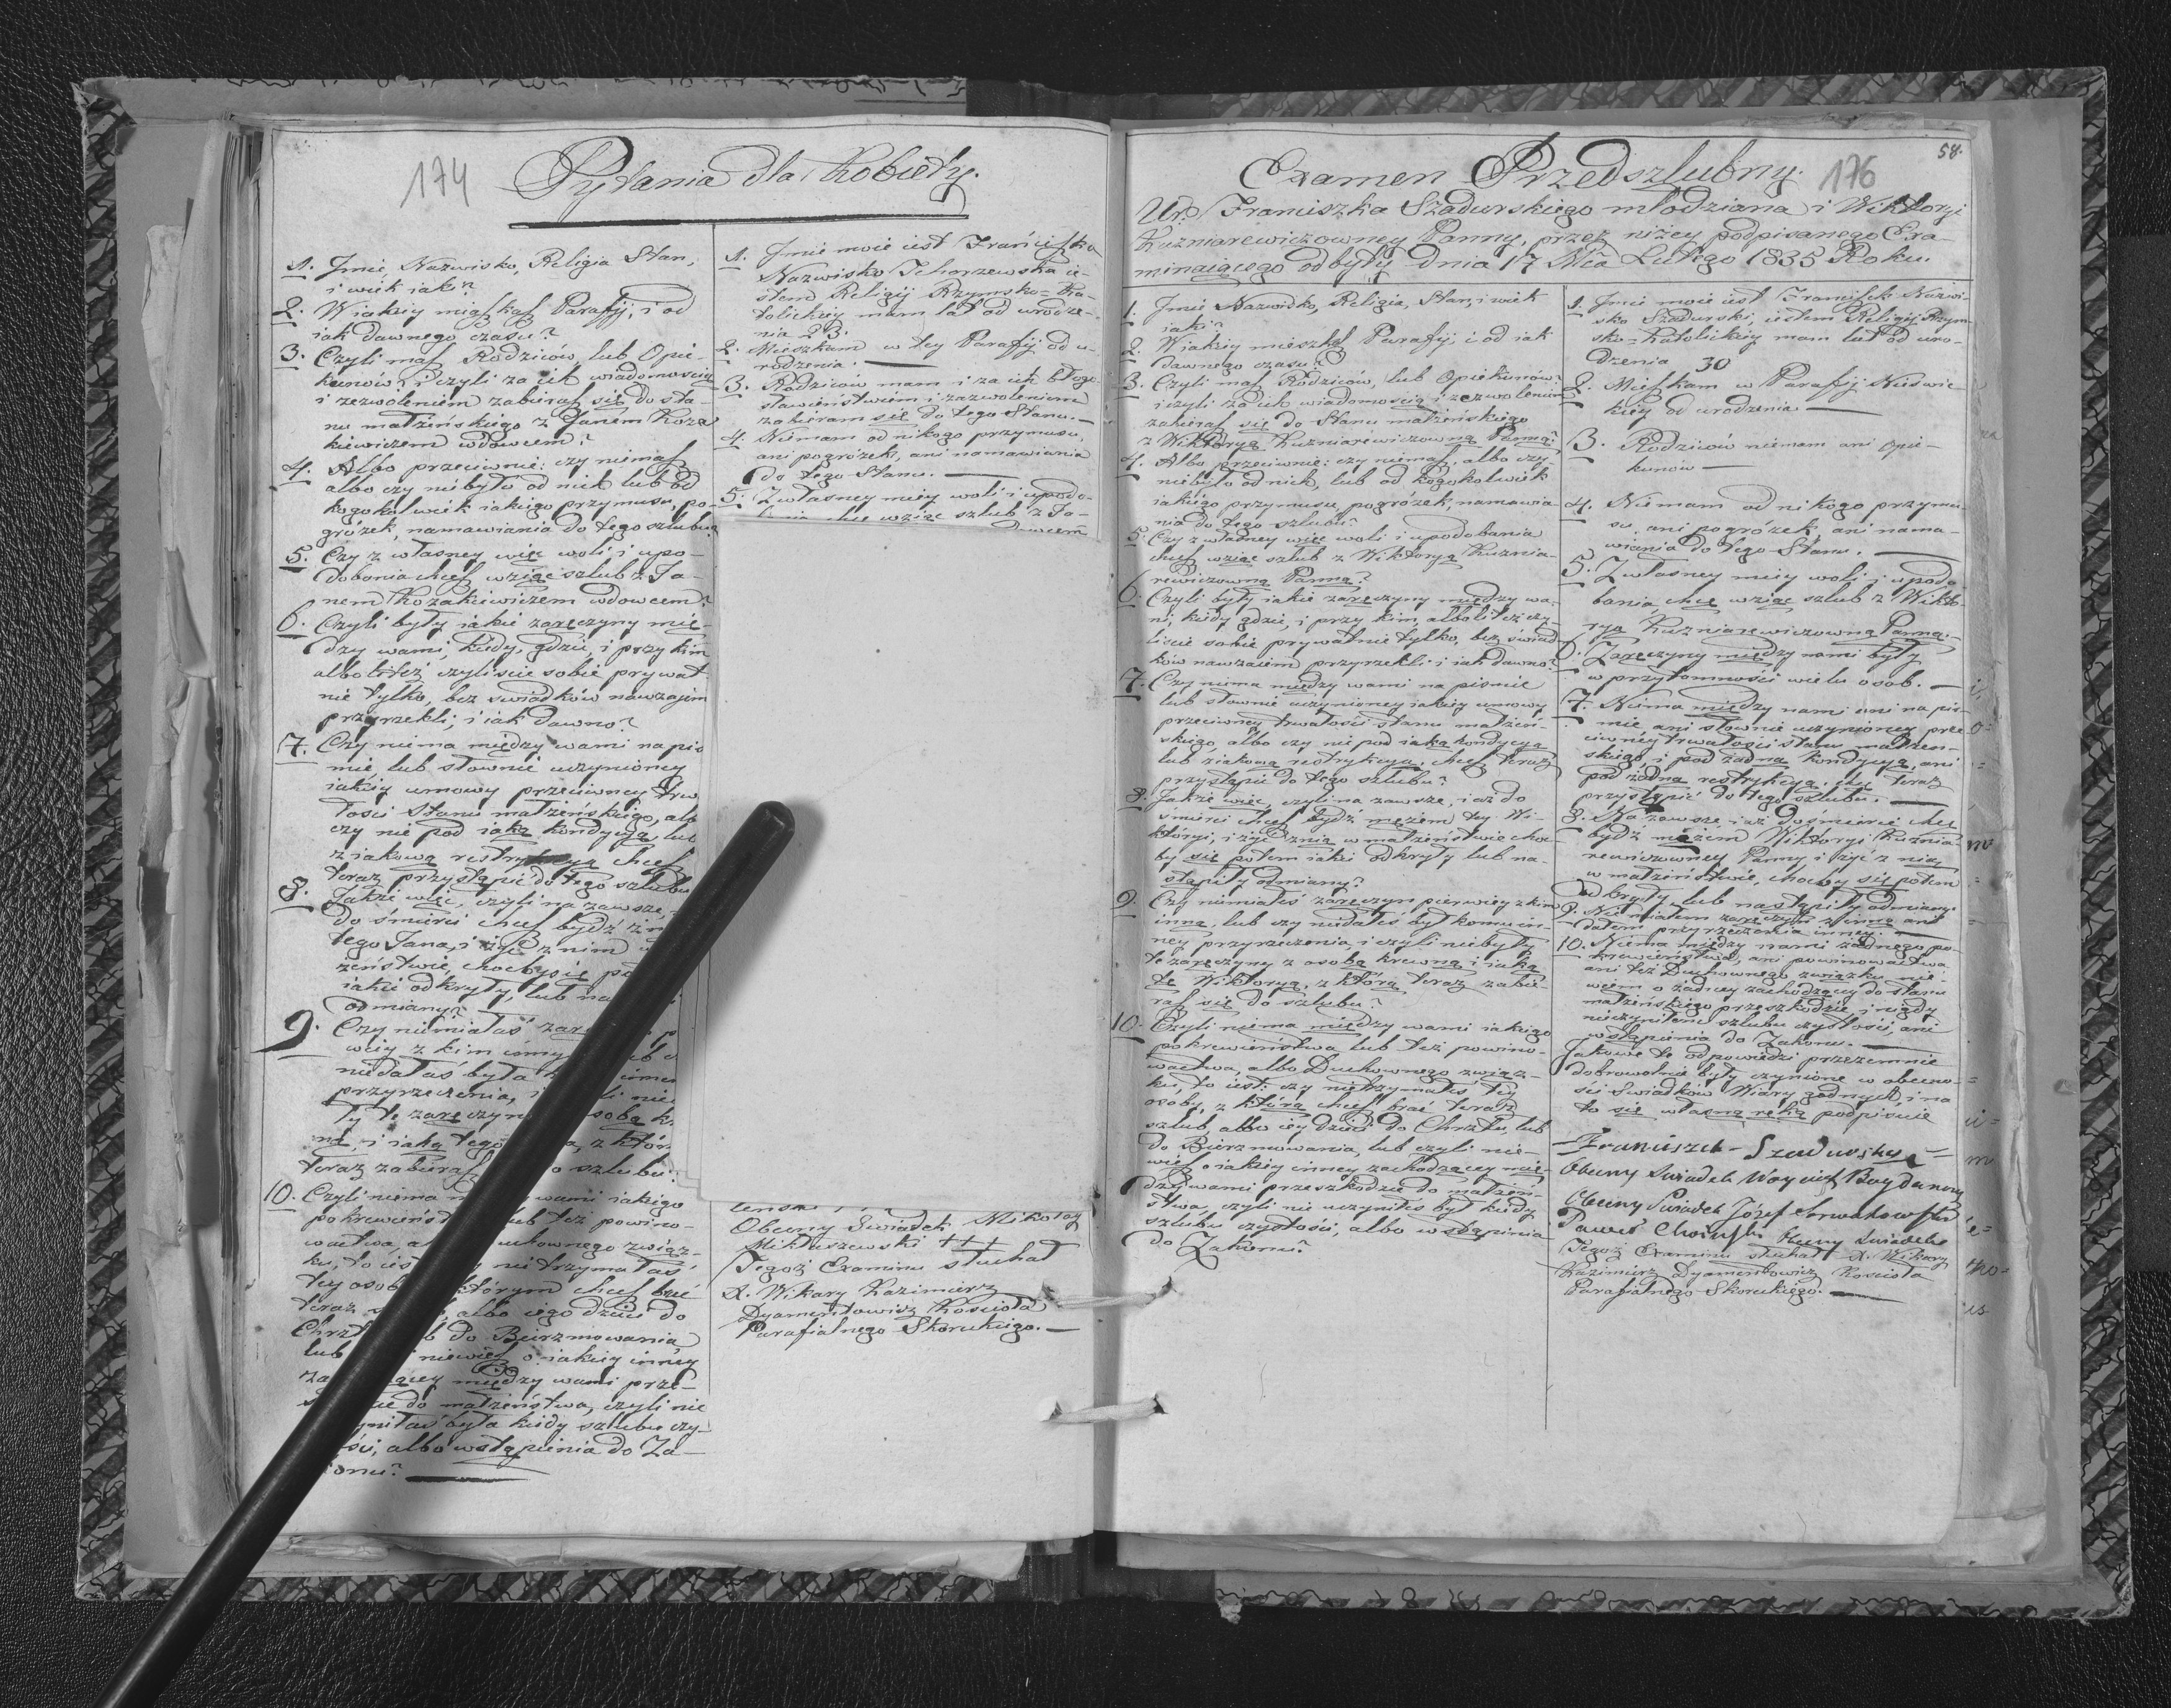 174
Pytania dla Kobiety.
1. Jmie, Nazwisko, Religia Stan,
i wiek iaki?
2. Wiakiey miaszkasz Parafij, i od
iak dawnego czasu?
3. Czyli masz Rodziców, lub Opie-
kunów? i czyli za ich wiadomością
i zezwoleniem zabierasz się do sta-
nu małżeńskiego z Janem Koza
kiewiczem wdowcem?
4. Albo przeciwnie: czy niemasz
albo czy niebyło od nich lub od
kogokolwiek iakiego przymusu, po-
gróżek, namawiania do tego szlubu?
5. Czy z własney więc woli i upo-
dobania chcesz wziąć szlub z Ja-
nem Kozakiewiczem wdowcem?
6. Czyli były iakie zaręczyny mię-
dzy wami, kiedy, gdzie, i przy kim
albo liteż czyliście sobie prywat
nie tylko, bez swiadków nawzajem
przyrzekli; i iak dawno?
7. Czy niema między wami na piś
mie lub słownie uczynioney
iakiéy umowy przeciwney trw
łości Stanu małżeńskiego, alb
czy nie pod iaką kondycyą, lub
z iakową restrykcyą chcesz
teraz przystąpić do tego szlubu
8. Jakże więc, czyli na zawsze,
do śmierci chcesz bydź
tego Jana, i żyć z nim
żeństwie, chocby się
iakie odkryły, lub na
odmiany?
9. Czy niemiałaś zarę
wéy z kim
niedałaś była
przyrzeczenia, i
ły te zaręczyny osobą k
ną, i iaką tego z któr
teraz zabierasz o szlubu?
10. Czyli niema wami iakiego
pokrewieńst lub też powino-
wactwa, a uchownego związ-
ku, to iest nie trzymałaś
tey osob którym chcesz brać
teraz albo iego dzieci do
Chrzt do Bierzmowania,
lub niewiesz o iakiey inney
za ącey między wami prze-
do małżeństwa, czyli nie
yniłaś była kiedy szlubu czy-
ści, albo wstąpienia do Za-
onu?
1. Jmie moie iest Franciszka
Nazwisko Tchorzewska ie-
stem Religij Rzymsko=Ka-
tolickiey mam lat od urodze-
nia 23.
2. Mieszkam w tey Parafij od u-
rodzenia.
3. Rodziców mam i za ich błogo
sławieństwem i zazwoleniem
zabieram się do tego Stanu.
4. Niemam od nikogo przymusu,
ani pogróżek, ani namawiania
do tego Stanu.
5. Zwłasney méy woli i upodo-
chcę wziąć szlub z Ja-
Obecny Swiadek Mikołay
Mikłuszewski +++
Tegoż Examinu słuchał
X. Wikary Kazimierz
Dyamentowicz Kościoła
Parafialnego Skoruckiego.
58.
Examen Przedszlubny. 176
Ur. Franciszka Szadurskiego młodziana i Wiktoryi
Kuzniarewiczowney Panny, przez niżey podpisanego Exa
minującego odbyty Dnia 17 Mca Lutego 1835 Roku.
1. Jmie Nazwisko, Religia, Stan, i wiek
iaki?
2. Wiakiey mieszkasz Parafij, i od iak
dawnego czasu?
3. Czyli masz Rodziców, lub Opiekunów?
i czyli za ich wiadomością i zezwoleniem
zabierasz się do Stanu małżeńskiego
z Wiktoryą Kuzniarewiczowną Panną?
4. Albo przeciwnie: czy niemasz, albo czy
niebyło od nich, lub od kogokolwiek
iakiego przymusu, pogróżek, namawia-
nia do tego szlubu?
5. Czy z własney więc woli i upodobania
chcesz wziąć szlub z Wiktoryą Kuznia-
rewiczowną Panną?
6. Czyli były iakie zaręczyny między wa-
mi, kiedy gdzie, i przy kim, albo liteż czy-
liście sobie prywatnie tylko, bez swiad-
ków nawzaiem przyrzekli: i iak dawno?
7. Czy niema między wami na pismie
lub słownie uczynioney iakiey umowy
przeciwney trwałości stanu małżeń-
skiego, albo czy nie pod iaką kondycyą
lub ziakową restrykcyą, chcesz teraz
przystąpić do tego szlubu?
8. Jakże więc, czyli na zawsze, i aż do
smierci chcesz bydź mężem tey Wi-
ktoryi, i żyć z nią w małżeństwie choc-
by się potem iakie odkryły lub na-
stąpiły odmiany?
9. Czy niemiałeś zaręczyn pierwiey z kim
inną, lub czy niedałeś był komu in-
ney przyrzeczenia, i czyli niebyły
te zaręczyny z osobą krewną i iaką
tę Wiktoryą, z którą teraz zabie-
rasz się do szlubu?
10. Czyli niema między wami iakiego
pokrewieństwa lub też powino-
wactwa, albo Duchownego związ-
ku, to iest: czy nietrzymałeś tey
osoby, z którą chcesz brać teraz
szlub, albo iey dzieci do Chrztu, lub
do Bierzmowania, lub czyli nie-
wiesz o iakiey inney zachodzącey mię-
dzy wami przeszkodzie do małżeń-
stwa, czyli nie uczyniłeś był kiedy
szlubu czystości, albo wstąpienia
do Zakonu?
1. Jmie moie iest Franciszek Nazwi-
sko Szadurski, iestem Religij Rzym-
sko=Katolickiey mam lat od uro-
dzenia 30
2. Mieszkam w Parafij Nieświe-
kiey od urodzenia
3. Rodziców niemam ani opie-
kunów
4. Niemam od nikogo przymu-
su, ani pogróżek, ani nama-
wiania do tego Stanu.
5. Zwłasney méy woli i upodo-
bania chcę wziąć szlub z Wikto-
ryą Kuzniarewiczowną Panną.
6. Zaręczyny między nami były
w przytomności wielu osob.
7. Niema między nami ani na piś-
mie ani słownie uczynioney prze
ciwnéy trwałości stanu małżen-
skiego, i pod żadną kondycyą, ani
pod żadną restrykcyą, chcę teraz
przystąpić do tego szlubu.
8. Na zawsze i aż do śmierci chcę
bydź mężem Wiktoryi Kuznia-
rewiczowney Panny i żyć z nią,
w małżeństwie, chocby się potem
odkryły, lub nastąpiły odmiany.
9. Nie miałem zaręczyn z inną ani
dałem przyrzeczenia inney.
10. Niema między nami żadnego po-
krewieństwa, ani powinowactwa
ani też Duchownego związku nie
wiem o żadney zachodzącey do stanu
małżeńskiego przeszkodzie i nigdy
nieczyniłem szlubu czystości, ani
wstąpienia do Zakonu.
Jakowe te odpowiedzi przezemnie
dobrowolnie były czynione w obecno-
ści Swiadków Wiary godnych, i na
to się własną ręką podpisuię
Franciszek Szadurski
Obecny Swiadek Woyciech Bogdanowicz
Obecny Swiadek Józef
Paweł Obecny Swiadek
Tegoż Examinu słuchał X. Wikary
Kazimierz Dyamentowicz Kościoła
Parafialnego Skoruckiego.